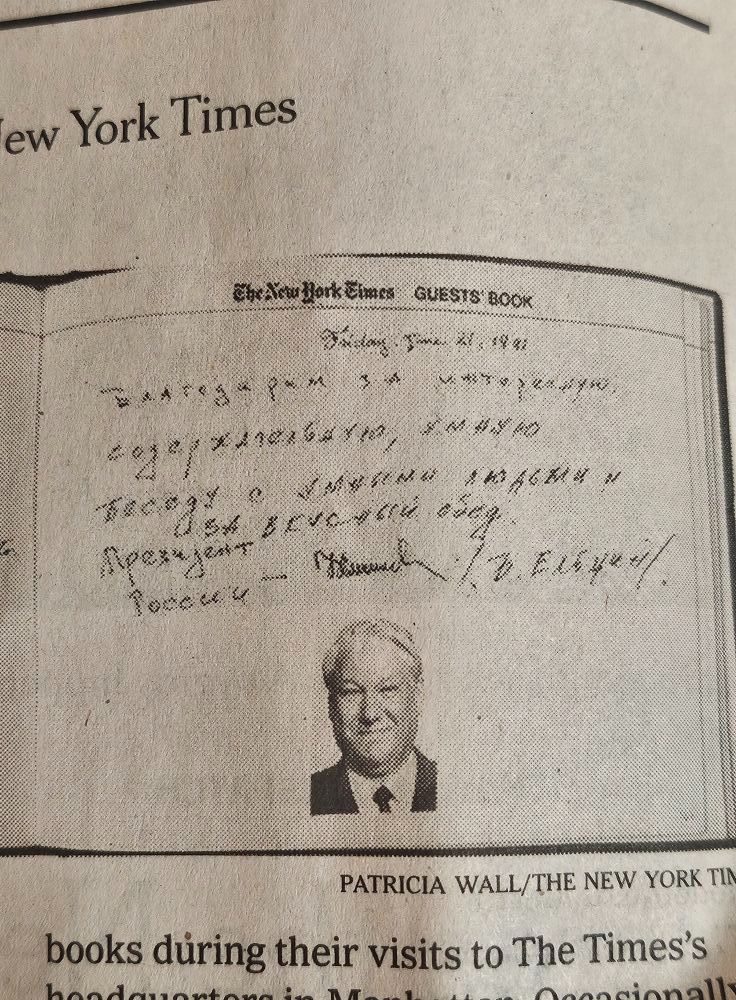 New York Times
The New York Times GUESTS' BOOK
Friday, June 21, 1991
Благодарим за интересную,
содержательную, умную
беседу с умными людьми и
за вкусный обед.
Президент
России — / Б. Ельцин /
PATRICIA WALL/THE NEW YORK TIM
books during their visits to The Times's
headquarters in Manhattan. Occasionally